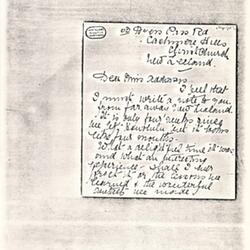 Cashmere Hills
Christchurch
New Zealand.
Dear Miss
I feel that
I must write a note to you
from far away New Zealand.
It is only four weeks since
we left Honolulu but it seems
like four months.
What a delightful time it was
and what an interesting
experience - shall I ever
forget it or the
learned & the wonderful
we made